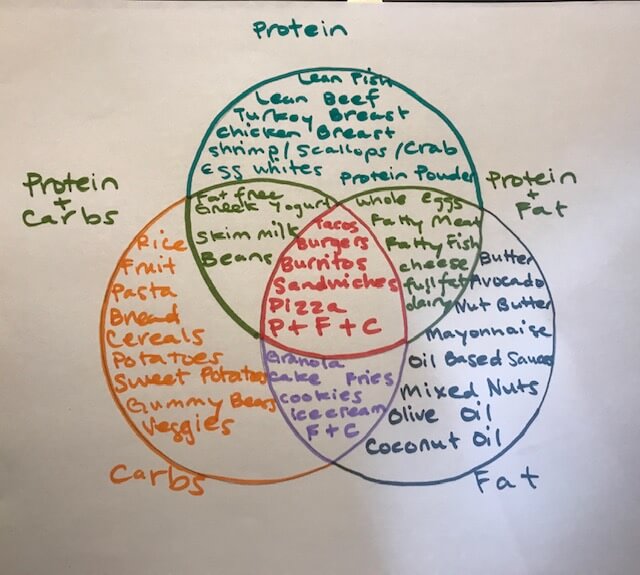 Protein
Lean Fish
Lean Beef
Turkey Breast
Chicken Breast
Shrimp/Scallops/Crab
Egg Whites
Protein Powder
Protein
+
Carbs
Protein
+
Fat
Fat free
Greek Yogurt
Skim milk
Beans
Whole eggs
Fatty Meat
Fatty Fish
cheese
full fat
dairy
Tacos
Burgers
Burritos
Sandwiches
Pizza
P + F + C
Rice
Fruit
Pasta
Bread
Cereals
Potatoes
Sweet Potatoes
Gummy Bears
Veggies
Butter
Avocado
Nut Butter
Mayonnaise
Oil Based Sauces
Mixed Nuts
Olive Oil
Coconut Oil
Granola
Cake Fries
cookies
ice cream
F + C
Carbs
Fat